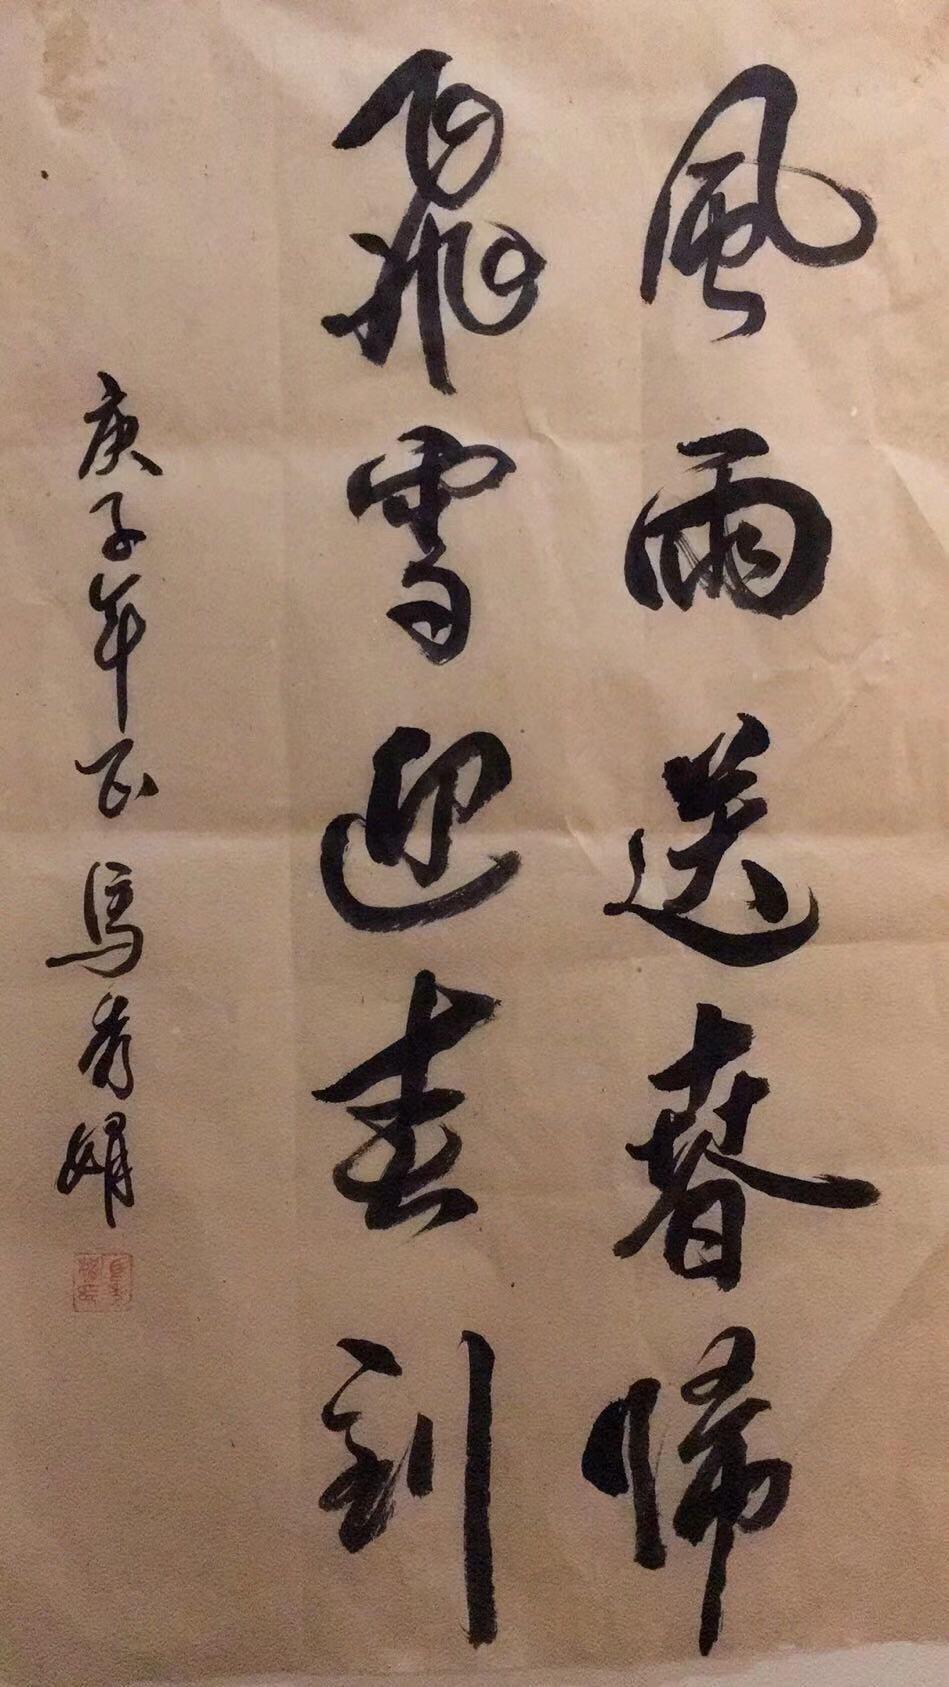 風雨送春歸
飛雪迎春到
庚子年 馬秀娟